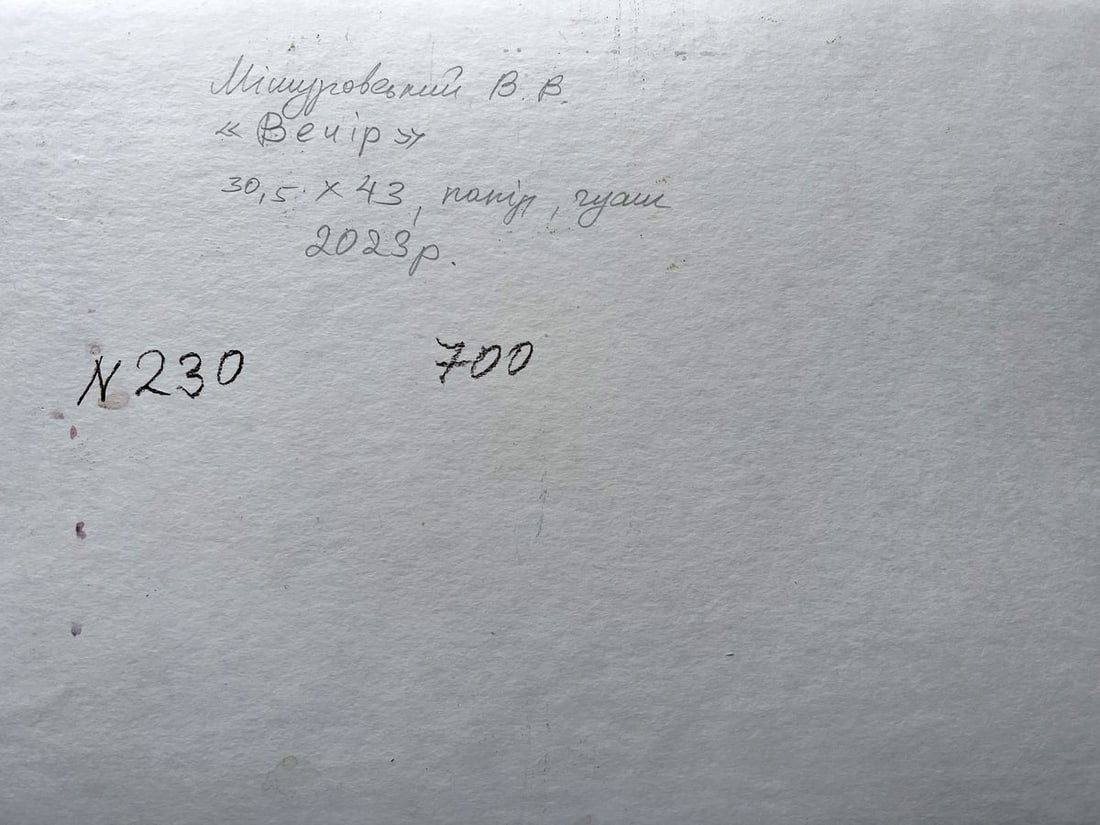 Мішуровський В. В.
« Вечір »
30,5 × 43, папір, гуаш
2023р.
N 230 700